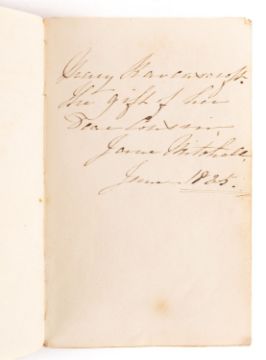 Mary Ravenscroft
the gift of her
Dear Cousin,
Jane Mitchell.
June 1835.